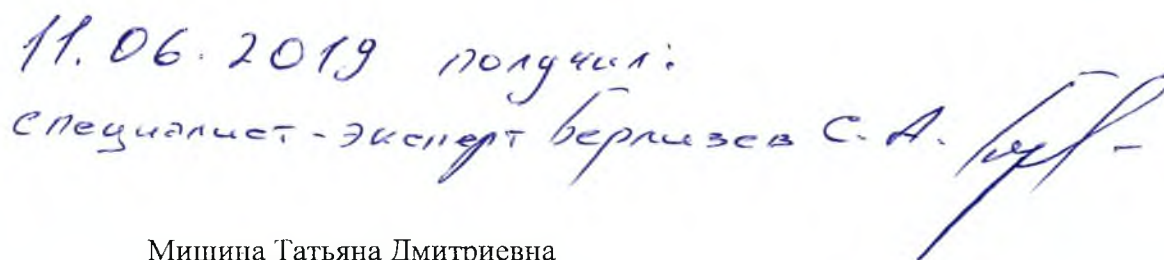 11.06.2019 получил:
специалист-эксперт Берлизев С.А.
Мишина Татьяна Дмитриевна